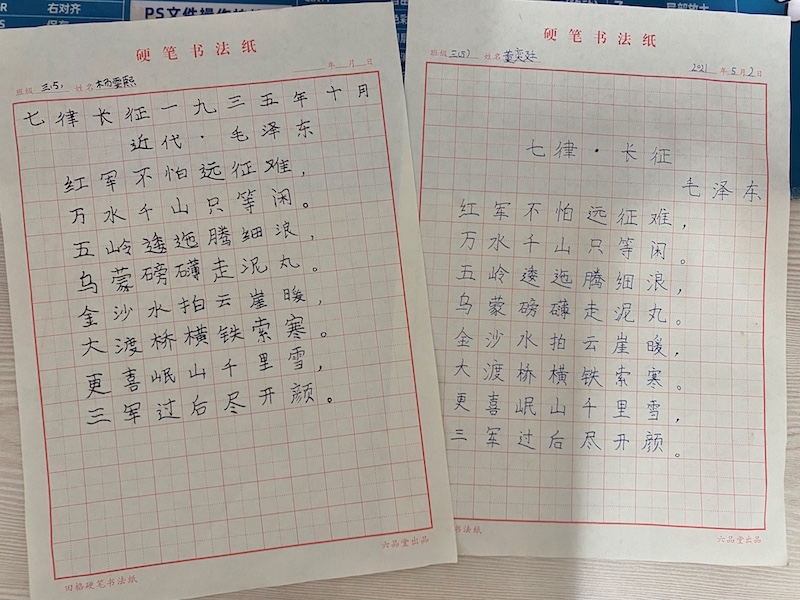 右对齐
硬笔书法纸
班级 三(5) 姓名 年 月 日
七律长征一九三五年十月
近代·毛泽东
红军不怕远征难,
万水千山只等闲。
五岭逶迤腾细浪,
乌蒙磅礴走泥丸。
金沙水拍云崖暖,
大渡桥横铁索寒。
更喜岷山千里雪,
三军过后尽开颜。
田格硬笔书法纸 六品堂出品
硬笔书法纸
班级 三(5) 姓名 2021年5月2日
七律·长征
毛泽东
红军不怕远征难,
万水千山只等闲。
五岭逶迤腾细浪,
乌蒙磅礴走泥丸。
金沙水拍云崖暖,
大渡桥横铁索寒。
更喜岷山千里雪,
三军过后尽开颜。
书法纸 六品堂出品